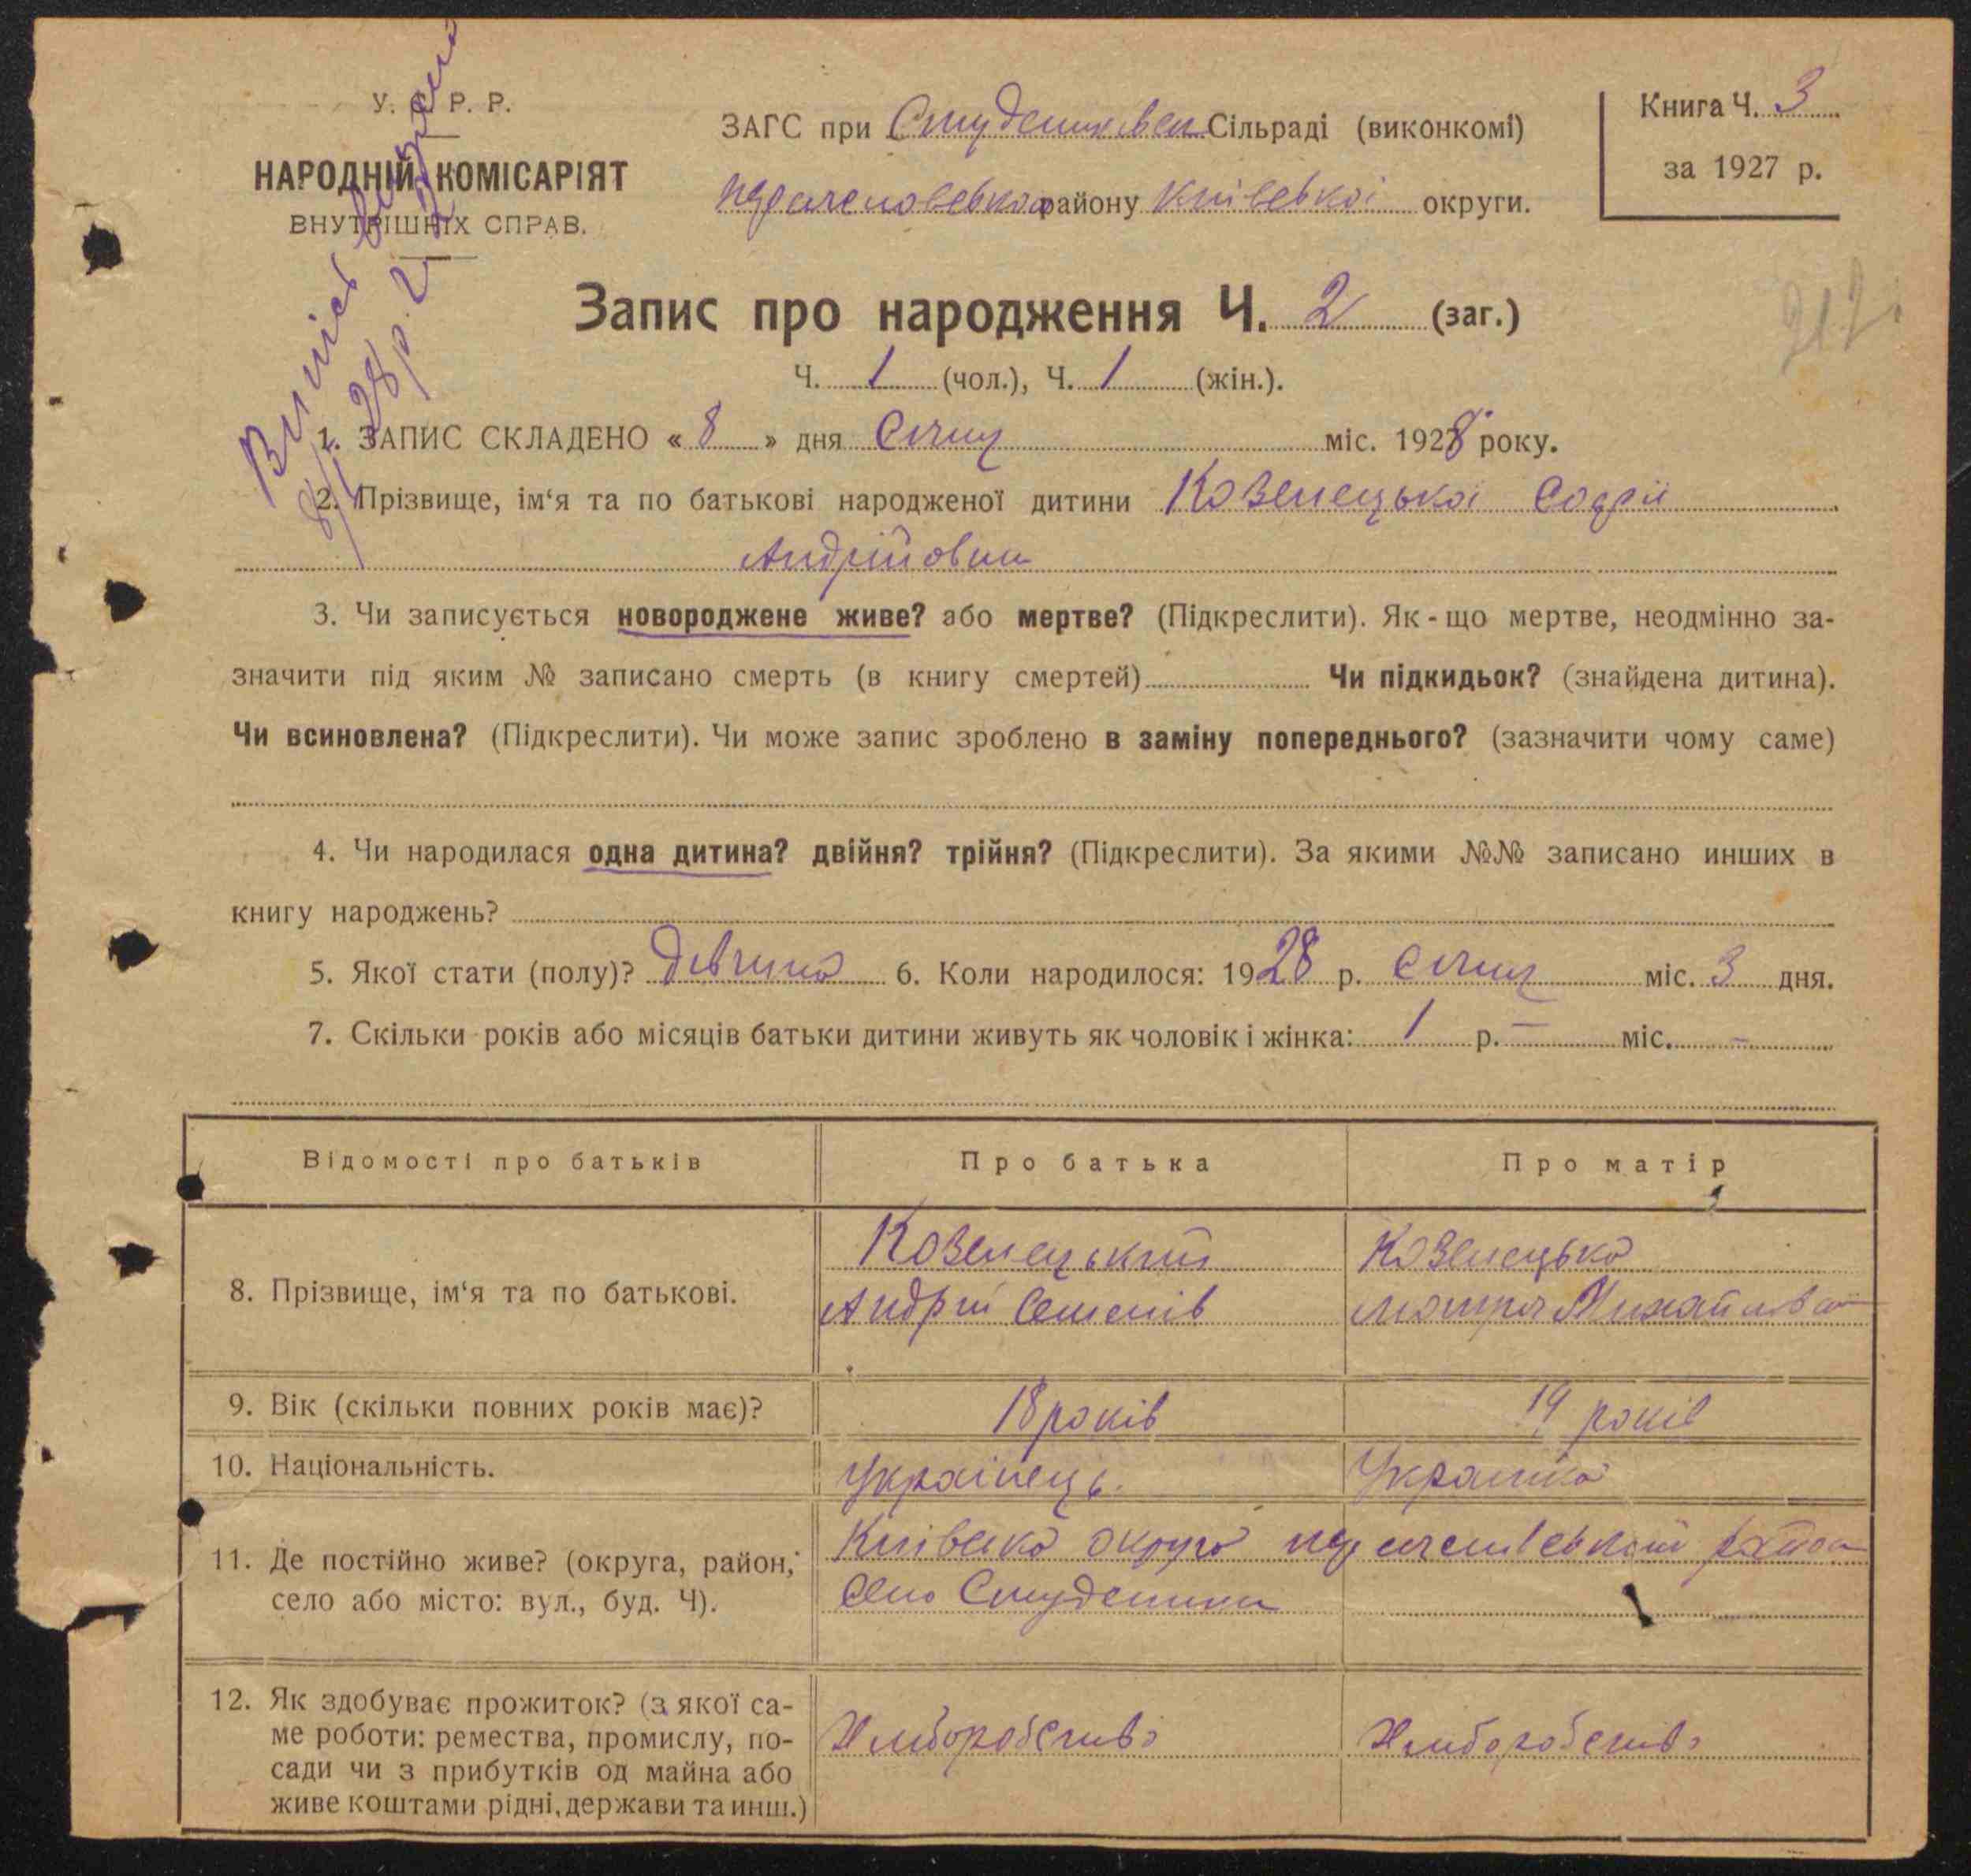 У. С. Р. Р.
НАРОДНІЙ КОМІСАРІЯТ
ВНУТРІШНІХ СПРАВ.
ЗАГС при Студениківск Сільраді (виконкомі)
району Київської округи.
Книга Ч. 3
за 1927 р.
Випись видано
Запис про народження Ч. 2 (заг.)
Ч. 1 (чол.), Ч. 1 (жін.).
1. ЗАПИС СКЛАДЕНО « 8 » дня Січня міс. 1928 року.
2. Прізвище, ім‘я та по батькові народженої дитини Козелецької Софії
Андрійовни
3. Чи записується новороджене живе? або мертве? (Підкреслити). Як-що мертве, неодмінно за-
значити під яким № записано смерть (в книгу смертей) Чи підкидьок? (знайдена дитина).
Чи всиновлена? (Підкреслити). Чи може запис зроблено в заміну попереднього? (зазначити чому саме)
4. Чи народилася одна дитина? двійня? трійня? (Підкреслити). За якими №№ записано инших в
книгу народжень?
5. Якої стати (полу)? Дівчина 6. Коли народилося: 1928 р. Січня міс. 3 дня.
7. Скільки років або місяців батьки дитини живуть як чоловік і жінка: 1 р. — міс. –
Відомості про батьків Про батька Про матір
8. Прізвище, ім‘я та по батькові. Козелецький Козелецька
Андрій Семенів Мотря Михайлівна
9. Вік (скільки повних років має)? 18 років 19 років
10. Національність. Українець. Українка
11. Де постійно живе? (округа, район, Київська округа район
село або місто: вул., буд. Ч). село Студеники
12. Як здобуває прожиток? (з якої са-
ме роботи: ремества, промислу, по- Хліборобство Хліборобство
сади чи з прибутків од майна або
живе коштами рідні, держави та инш.)